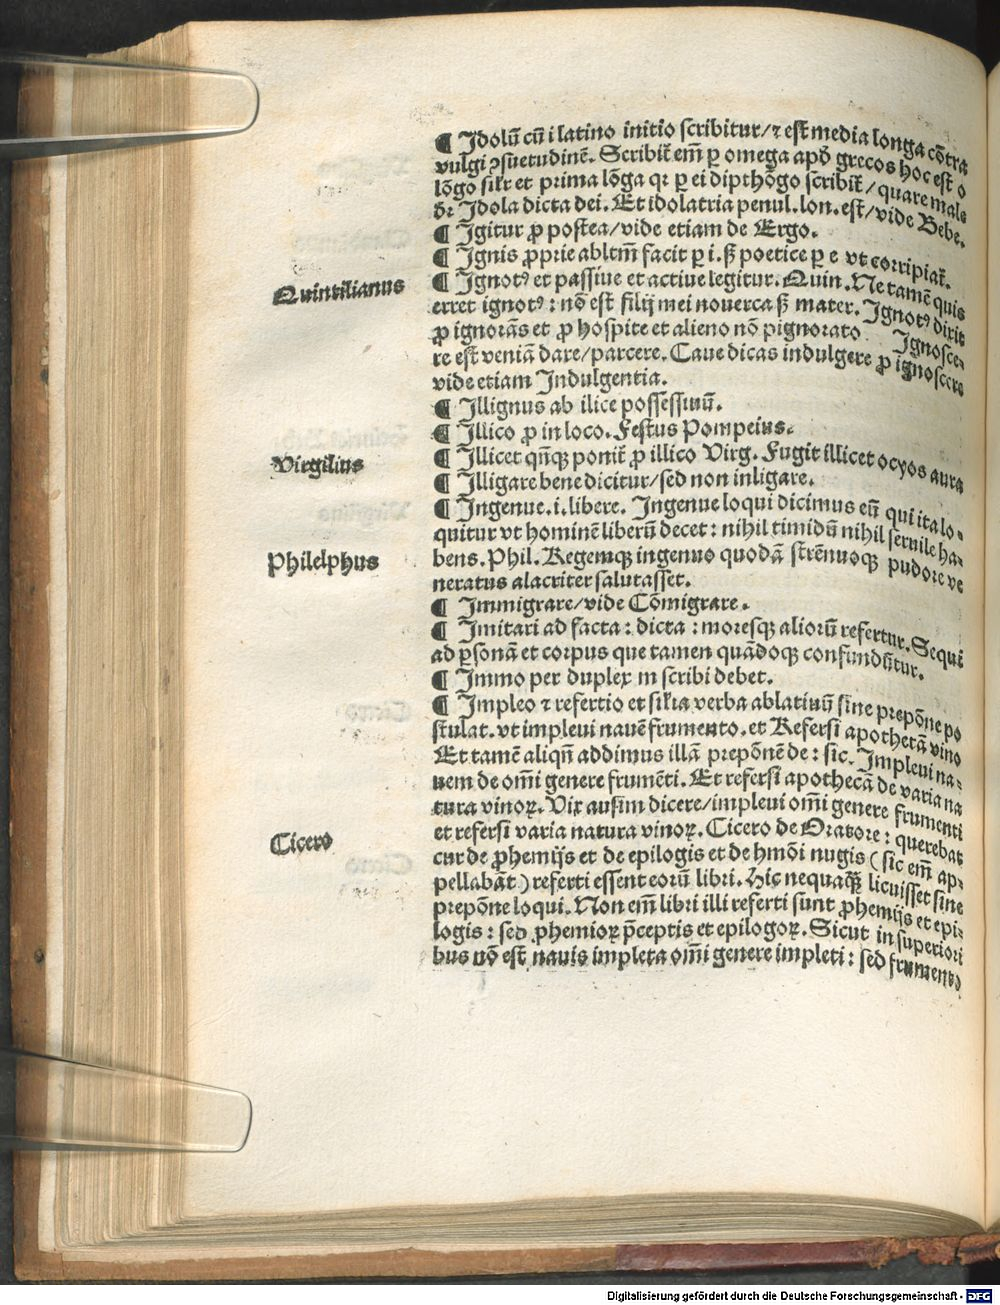 ¶ Idolū cū i latino initio scribitur/⁊ est media longa cōtra
vulgi ꝯsuetudinē. Scribit̄ em̄ ꝑ omega apď grecos hoc est o
lōgo sil'r et prima lōga qꝛ ꝑ ei dipthōgo scribit̄/quare male
dꝛ Idola dicta dei. Et idolatria penul. lon. est/vide Bebe.
¶ Igitur ꝓ postea/vide etiam de Ergo.
¶ Ignis ꝓprie abltm̄ facit ꝑ i. sꝫ poetice ꝑ e vt corripiat̄.
¶ Ignotꝰ et passiue et actiue legitur. Quin. Ne tamē quis
Quintilianus
erret ignotꝰ: nō est filij mei nouerca sꝫ mater. Ignotꝰ dixit
ꝓ ignorās et ꝓ hospite et alieno nō pignorato Ignosce-
re est veniā dare/parcere. Caue dicas indulgere ꝓ ignoscere
vide etiam Indulgentia.
¶ Illignus ab ilice possessiuū.
¶ Illico ꝓ in loco. Festus Pompeius.
¶ Illicet qn̄qꝫ ponit̄ ꝓ illico Virg. Fugit illicet ocyos aura
Virgilius
¶ Illigare bene dicitur/sed non inligare.
¶ Ingenue .i. libere. Ingenue loqui dicimus eū qui ita lo-
quitur vt hominē liberū decet: nihil timidū nihil seruile ha-
bens. Phil. Regemqꝫ ingenuo quodā strēnuoqꝫ pudore ve
Philelphus
neratus alacriter salutasset.
¶ Immigrare/vide Cōmigrare.
¶ Imitari ad facta: dicta: moresqꝫ aliorū refertur. Sequi
ad ꝑsonā et corpus que tamen quādoqꝫ confundūtur.
¶ Immo per duplex m scribi debet.
¶ Impleo ⁊ refertio et sil'ia verba ablatiuū sine prepōne po
stulat. vt impleui nauē frumento. et Refersi apothecā vino
Et tamē aliqn̄ addimus illā prepōnē de: sic. Impleui na-
uem de om̄i genere frumēti. Et refersi apothecā de varia na
tura vinoꝝ. Vix ausim dicere/impleui om̄i genere frumenti
et refersi varia natura vinoꝝ. Cicero de Oratore: querebat
Cicero
cur de ꝓhemijs et de epilogis et de hmōi nugis (sic em̄ ap-
pellabāt) referti essent eorū libri. Hic nequaꝙ̄ licuisset sine
prepōne loqui. Non em̄ libri illi referti sunt ꝓhemijs et epi-
logis: sed ꝓhemioꝝ p̄ceptis et epilogoꝝ. Sicut in superiori
bus nō est nauis impleta om̄i genere impleti: sed frumento
Digitalisierung gefördert durch die Deutsche Forschungsgemeinschaft - DFG